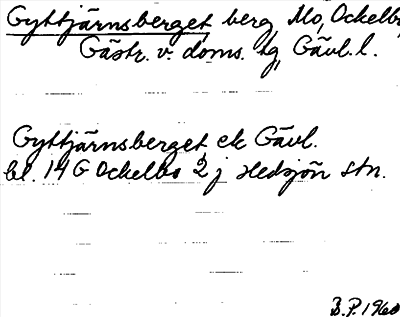 Gyttjärnsberget berg, Mo, Ockelbo
Gästr. v. doms. tg, Gävl. l.
Gyttjärnsberget ek Gävl.
bl. 14 G Ockelbo 2 j Hedsjön stn.
B.P. 1960